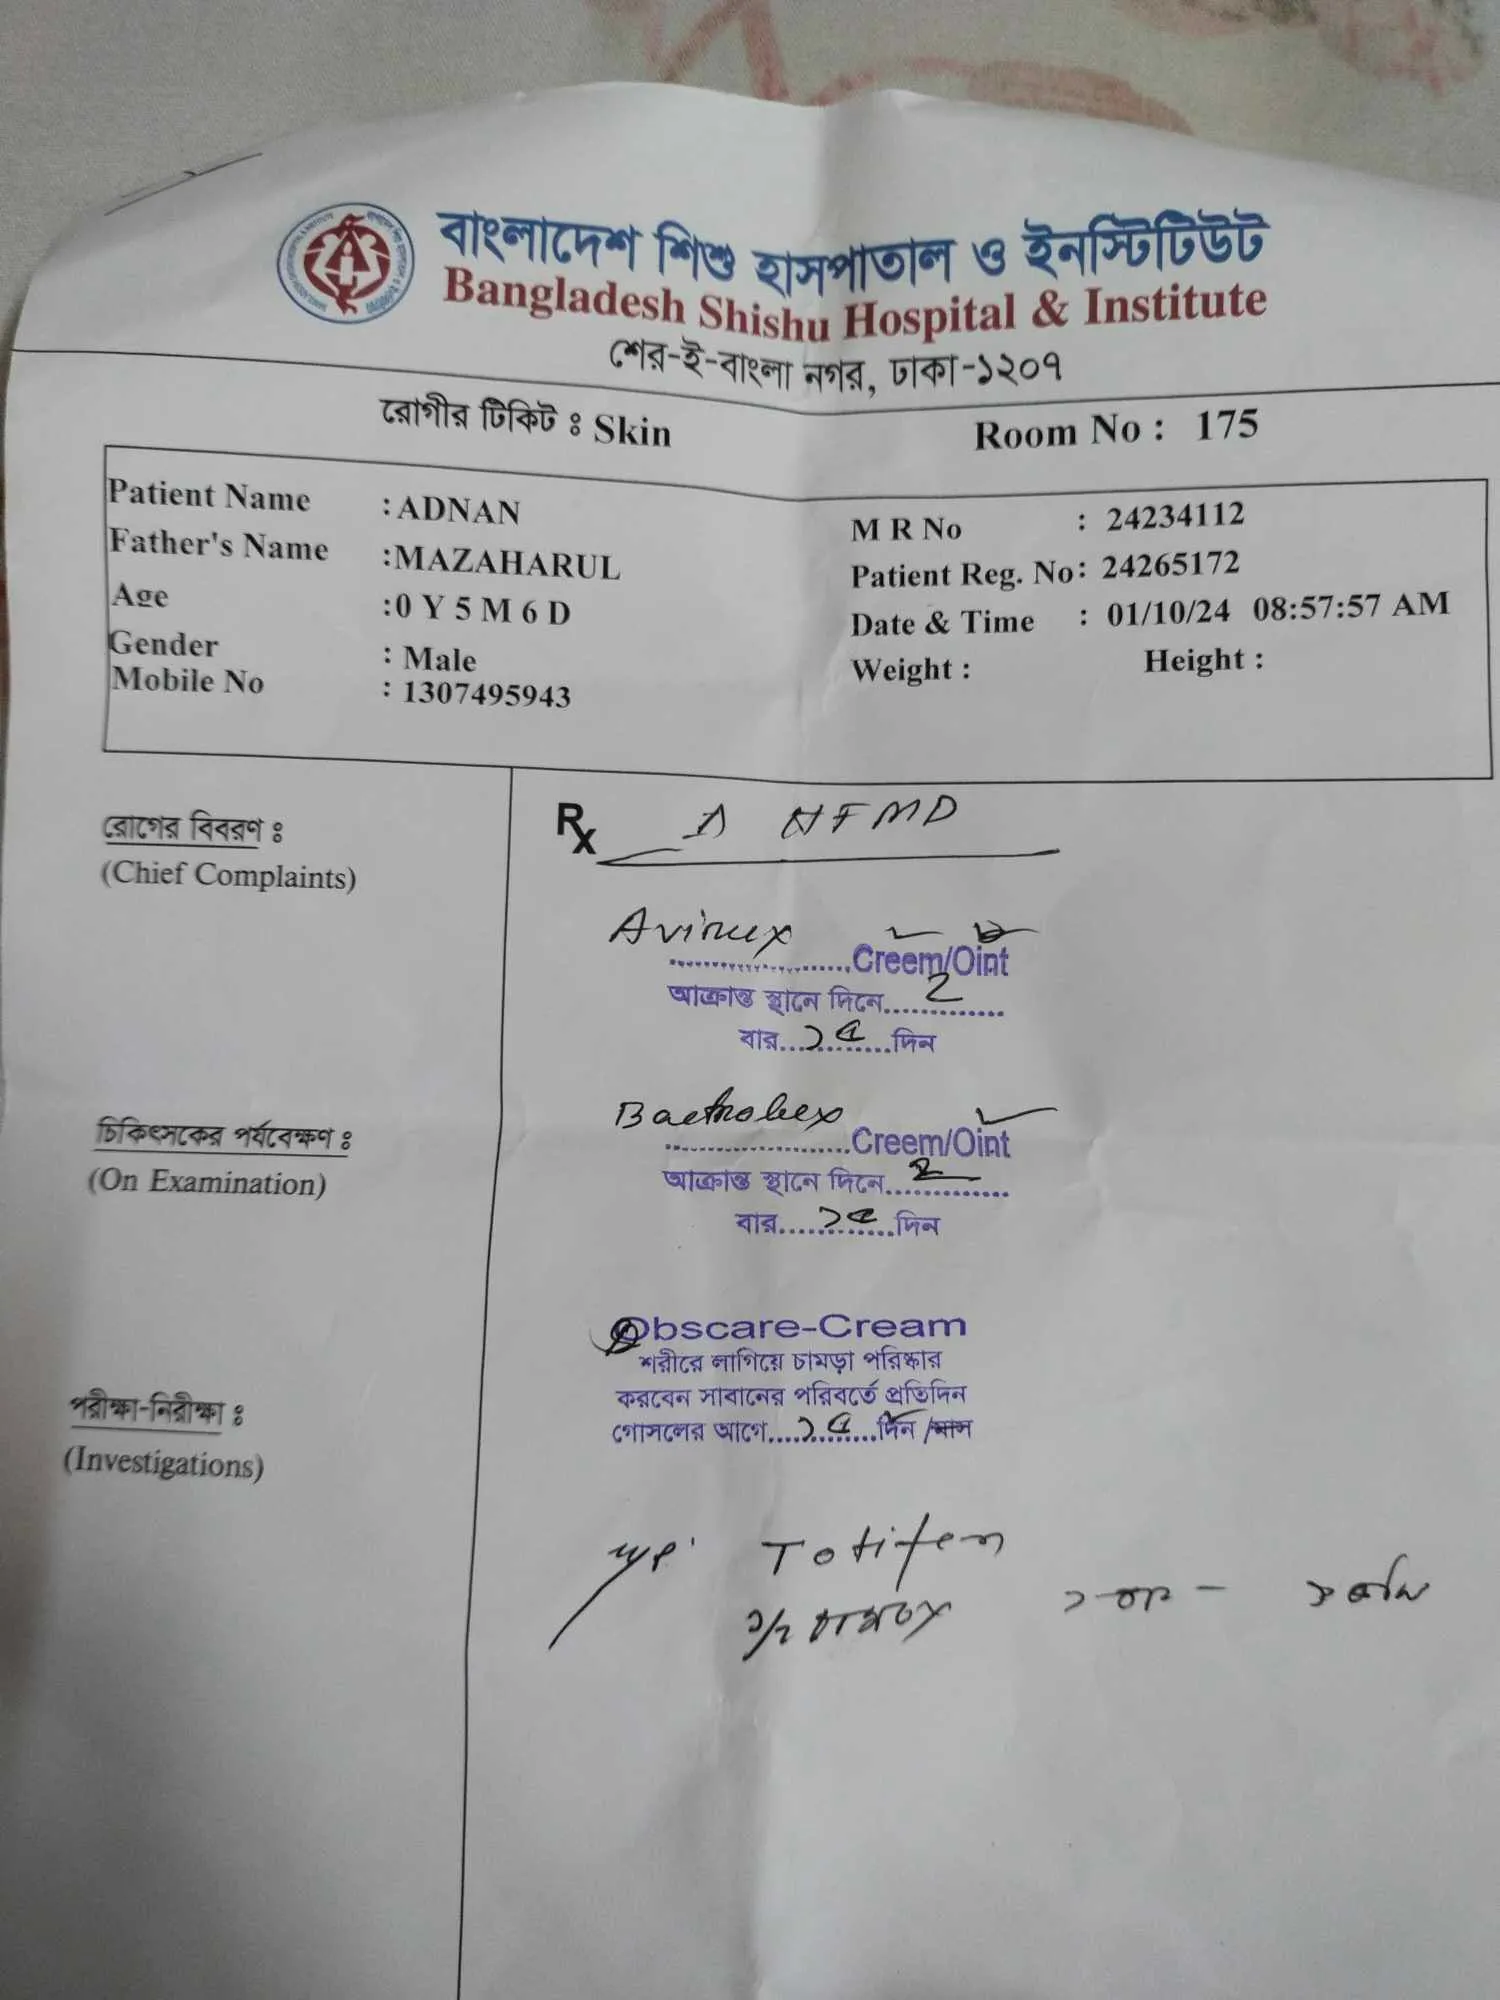 বাংলাদেশ শিশু হাসপাতাল ও ইনস্টিটিউট
Bangladesh Shishu Hospital & Institute
শের-ই-বাংলা নগর, ঢাকা-১২০৭
রোগীর টিকিট ঃ Skin
Room No : 175
Patient Name : ADNAN
Father's Name :MAZAHARUL
Age :0 Y 5 M 6 D
Gender : Male
Mobile No : 1307495943
M R No : 24234112
Patient Reg. No: 24265172
Date & Time : 01/10/24 08:57:57 AM
Weight : Height :
রোগের বিবরণ ঃ
(Chief Complaints)
চিকিৎসকের পর্যবেক্ষণ ঃ
(On Examination)
পরীক্ষা-নিরীক্ষা ঃ
(Investigations)
Rx HFMD
Avirux
....................Creem/Oint
আক্রান্ত স্থানে দিনে....2....
বার...১৫...দিন
Bactrobex
....................Creem/Oint
আক্রান্ত স্থানে দিনে....২....
বার...১৫...দিন
Obscare-Cream
শরীরে লাগিয়ে চামড়া পরিষ্কার
করবেন সাবানের পরিবর্তে প্রতিদিন
গোসলের আগে....১৫....দিন /মাস
Totifen
১/২ চামচ